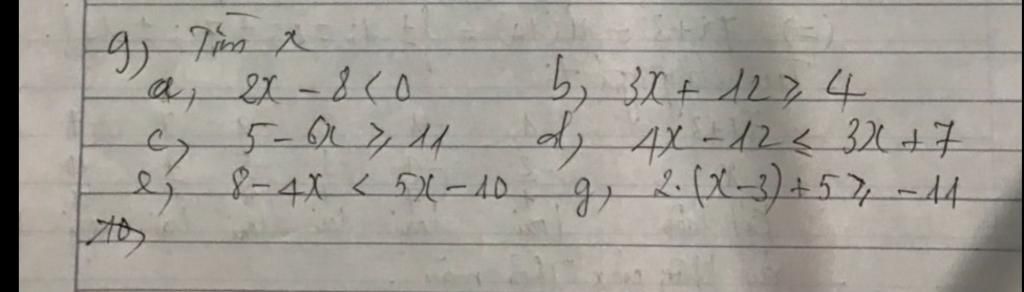 9, Tìm x
a, 2x - 8 < 0 b, 3x + 12 ≥ 4
c, 5 - 6x ≥ 11 d, 4x - 12 ≤ 3x + 7
e, 8 - 4x < 5x - 10 g, 2.(x - 3) + 5 ≥ -11
10,